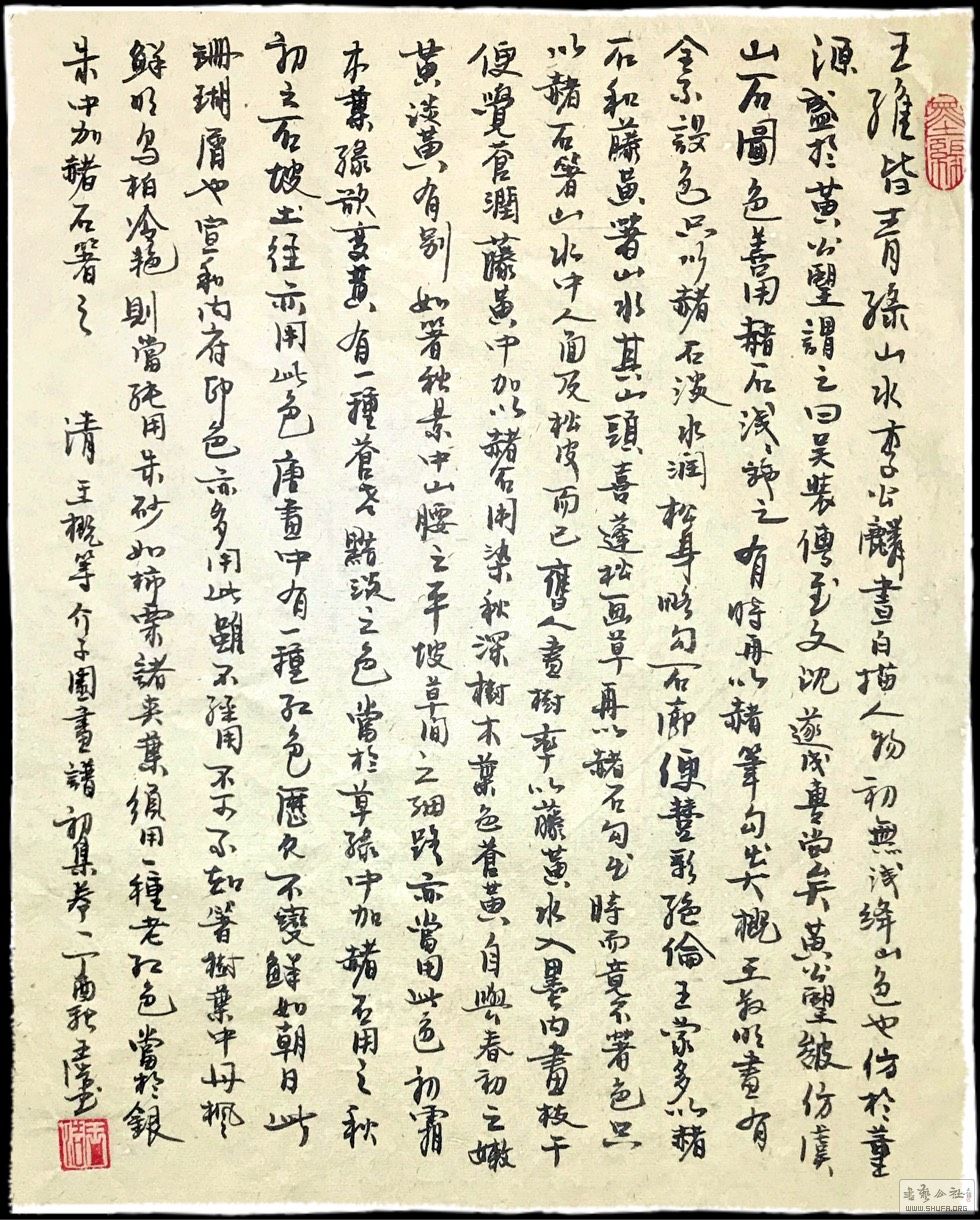 王維皆青綠山水李公麟盡白描人物初無淺絳山色也仿於董
源盛於黃公望謂之曰吳裝傳至文沈遂成專尚矣黃公望皴仿虞
山石圖色善用赭石淺淺施之有時再以赭筆勾出大概王叔明畫有
全不設色只以赭石淡水潤松身略勾石廓便豐彩絕倫王蒙多以赭
石和藤黃著山水其山頭喜蓬松畫草再以赭石勾出時而竟不著色只
以赭石著山水中人面及松皮而已舊人畫樹率以藤黃水入墨內畫枝干
便覺蒼潤藤黃中加以赭石用染秋深樹木葉色蒼黃自與春初之嫩
黃淡黃有別如著秋景中山腰之平坡草間之細路亦當用此色初霜
木葉綠欲變黃有一種蒼老黯淡之色當於草綠中加赭石用之秋
初之石坡土徑亦用此色唐畫中有一種紅色歷久不變鮮如朝日此
珊瑚屑也宣和內府印色亦多用此雖不經用不可不知著樹葉中丹楓
鮮明烏桕冷艷則當純用朱砂如柿栗諸夾葉須用一種老紅色當於銀
朱中加赭石著之　清王概等介子園畫譜初集卷一丁酉秋
書藝公社
WWW.SHUFA.ORG